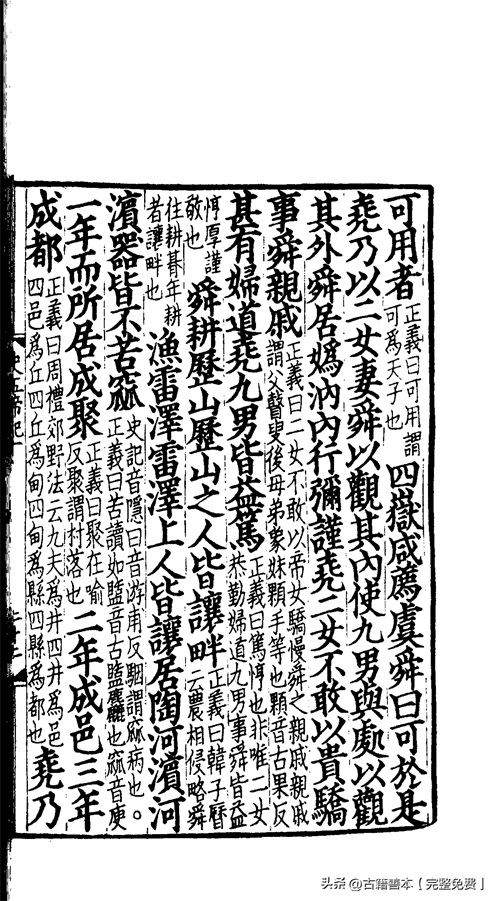 可用者正義曰可用謂可爲天子也四嶽咸薦虞舜曰可於是
堯乃以二女妻舜以觀其內使九男與處以觀
其外舜居嬀汭內行彌謹堯二女不敢以貴驕
事舜親戚正義曰二女不敢以帝女驕慢舜之親戚親戚謂父瞽叟後母弟象妹顆手等也顆音古果反
甚有婦道堯九男皆益篤正義曰篤惇也非唯二女恭勤婦道九男事舜皆益
惇厚謹敬也舜耕歷山歷山之人皆讓畔正義曰韓子曆云農相侵略舜
往耕朞年耕者讓畔也漁雷澤雷澤上人皆讓居陶河濱河
濱器皆不苦窳史記音隱曰音游甫反駰謂窳病也。正義曰苦讀如盬音古盬麤也窳音庾
一年而所居成聚正義曰聚在喻反聚謂村落也二年成邑三年
成都正義曰周禮郊野法云九夫爲井四井爲邑四邑爲丘四丘爲甸四甸爲縣四縣爲都也堯乃
头条 @古籍善本【完整免费】